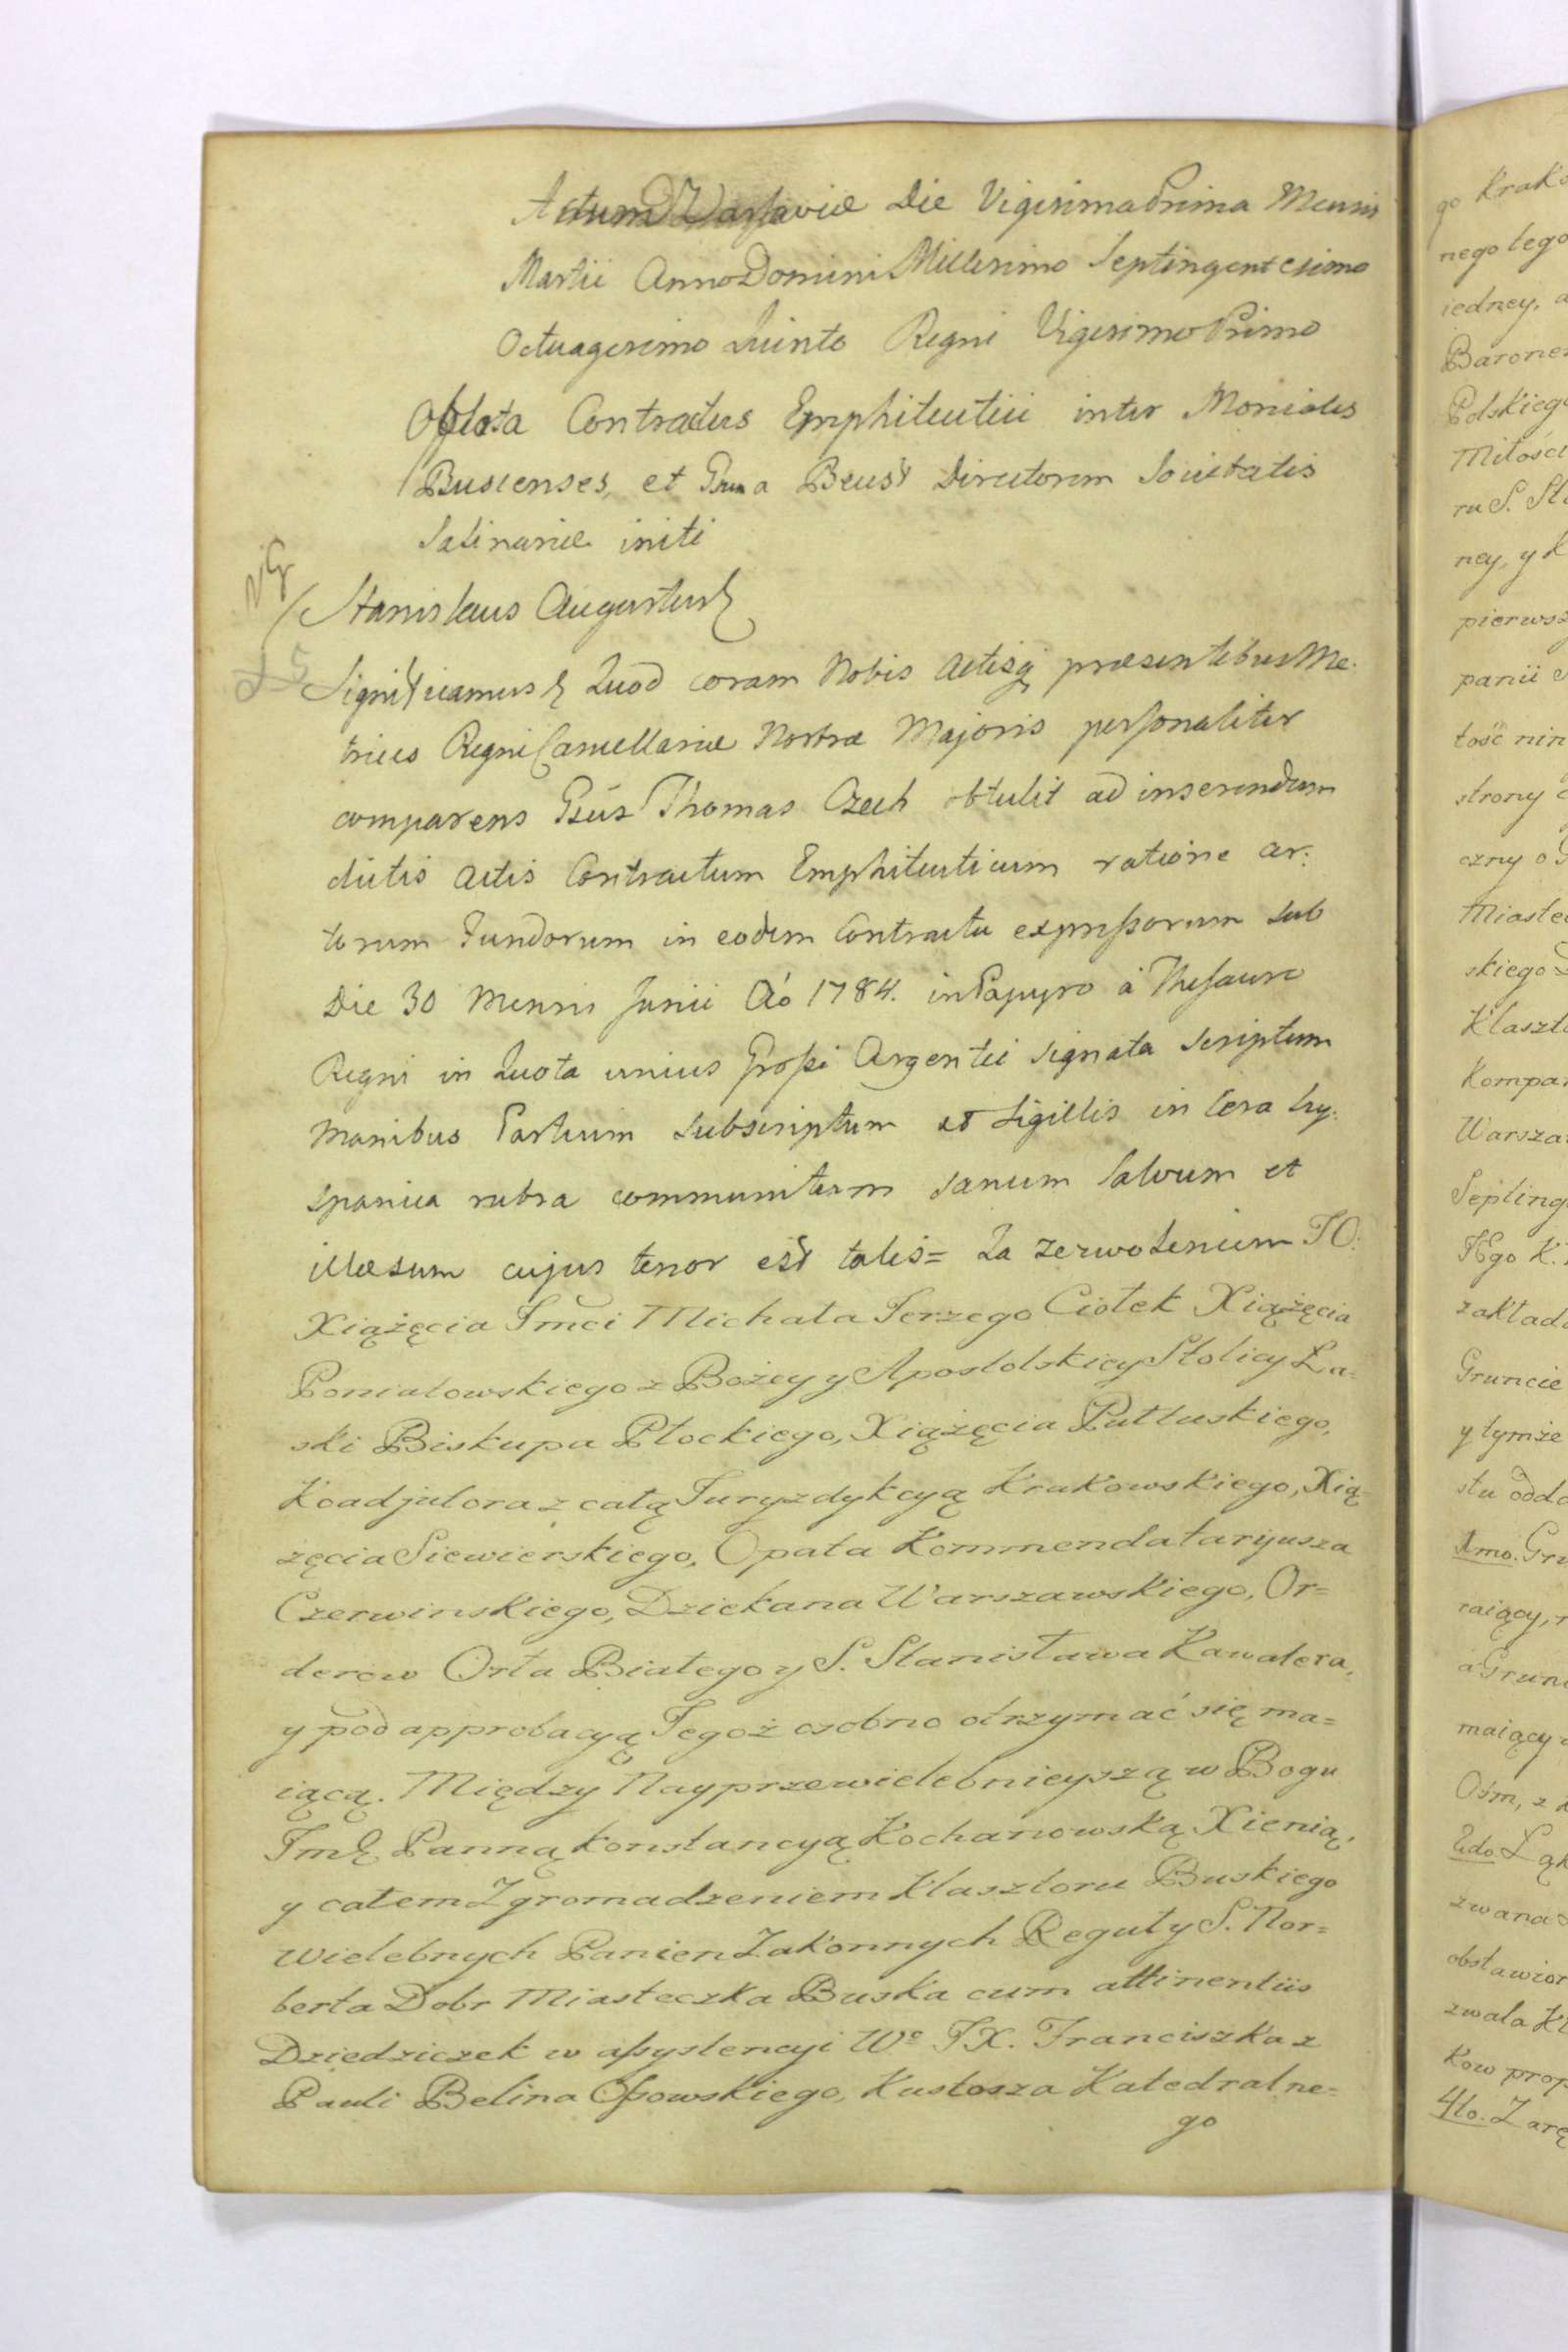 Actum Varsaviæ Die Vigesima Prima Mensis
Martii Anno Domini Millesimo Septingentesimo
Octuagesimo Quinto Regni Vigesimo Primo
Oblata Contractus Emphiteutici inter Moniales
Buscenses, et Gsum a Beust Directorem Societatis
Salinariæ initi
Stanislaus Augustus
Significamus Quod coram Nobis Actisq præsentibus Me-
trices Regni Cancellariæ Nostræ Majoris personaliter
comparens Gsus Thomas Czech obtulit ad inserendum
dictis Actis Contractum Emphiteuticum ratione cer-
torum Fundorum in eodem Contractu expressorum sub
Die 30 Mensis Junii Aó 1784. in Papyro à Thesauro
Regni in Quota unius Grossi Argentei signata scriptum
Manibus Partium subscriptum et Sigillis in Cera hy-
spanica rubra communitum sanum salvum et
illæsum cujus tenor est talis= Za zezwoleniem JO:
Xiążęcia Jmci Michała Jerzego Ciołek Xiążęcia
Poniatowskiego z Bożey y Apostolskiey Stolicy Ła-
ski Biskupa Płockiego, Xiążęcia Pułtuskiego,
Koadjutora z całą Juryzdykcyą Krakowskiego, Xią-
żęcia Siewierskiego, Opata Kommendataryusza
Czerwinskiego, Dziekana Warszawskiego, Or=
derow Orła Białego y S. Stanisława Kawalera,
y pod approbacyą Tegoż osobno otrzymać się ma=
iącą. Między Nayprzewielebnieyszą w Bogu
Jmę Panną Konstancyą Kochanowską Xienią,
y całem Zgromadzeniem Klasztoru Buskiego
Wielebnych Panien Zakonnych Reguły S. Nor=
berta Dobr Miasteczka Buska cum attinentiis
Dziedziczek w assystencyi Wo JX. Franciszka z
Pauli Belina Ossowskiego, Kustosza Katedralne=
go
go Krako
nego tego
iedney, a
Baronem
Polskiego
Miłości
ru S. Sta
ney, y K
pierwsz
panii S
tość nin
strony
czny o
Miastec
skiego
Klaszto
Kompan
Warszaw
Septing
JEgo K.
zakłada
Gruncie
y tymże
stu odda
1mo. Gru
raiący,
a Grun
maiący
Ośm, z
2do Łąk
zwana
obstawion
zwala Kl
kow prop
4to. Zarę